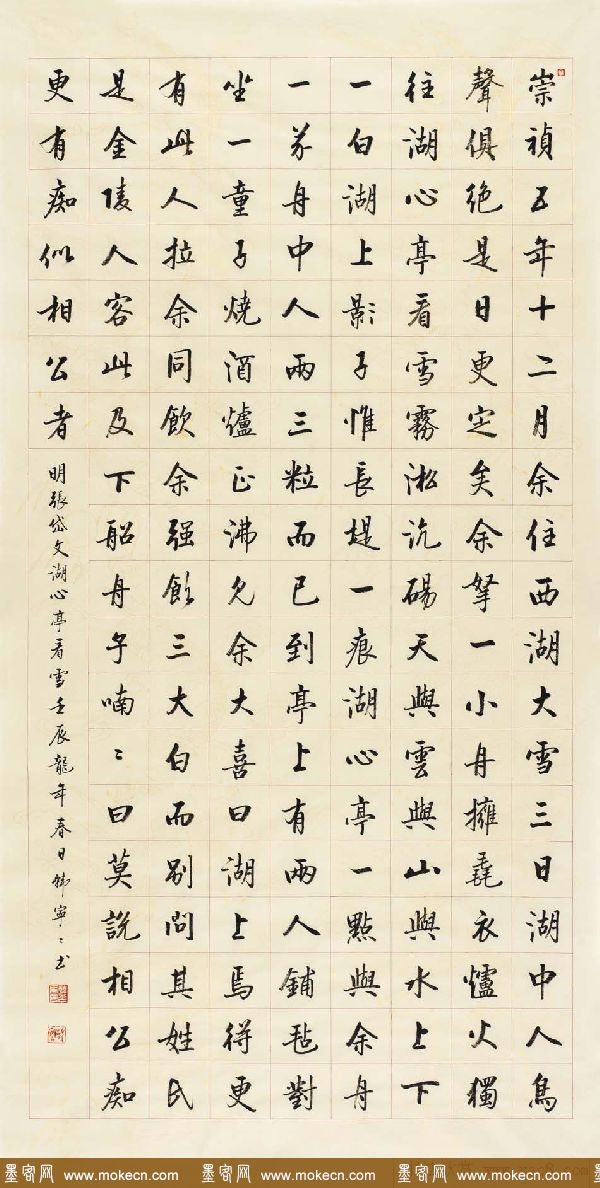 崇禎五年十二月余住西湖大雪三日湖中人鳥
聲俱絕是日更定矣余拏一小舟擁毳衣爐火獨
往湖心亭看雪霧淞沆碭天與雲與山與水上下
一白湖上影子惟長堤一痕湖心亭一點與余舟
一芥舟中人兩三粒而已到亭上有兩人鋪毡對
坐一童子燒酒爐正沸見余大喜曰湖上焉得更
有此人拉余同飲余强飲三大白而別問其姓氏
是金陵人客此及下船舟子喃〻曰莫說相公痴
更有痴似相公者
明張岱文湖心亭看雪壬辰龍年春日韓寧〻書
墨客网 www.mokecn.com 墨客网 www.mokecn.com 墨客网 www.mokecn.com 墨客网